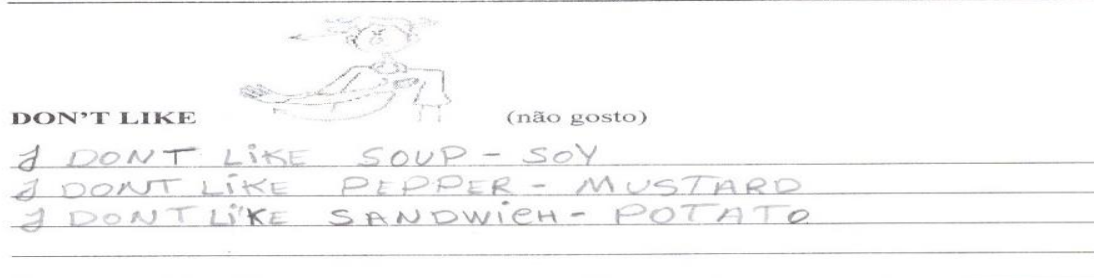 DON'T LIKE (não gosto)
I DONT LIKE SOUP - SOY
I DONT LIKE PEPPER - MUSTARD
I DONT LIKE SANDWICH - POTATO